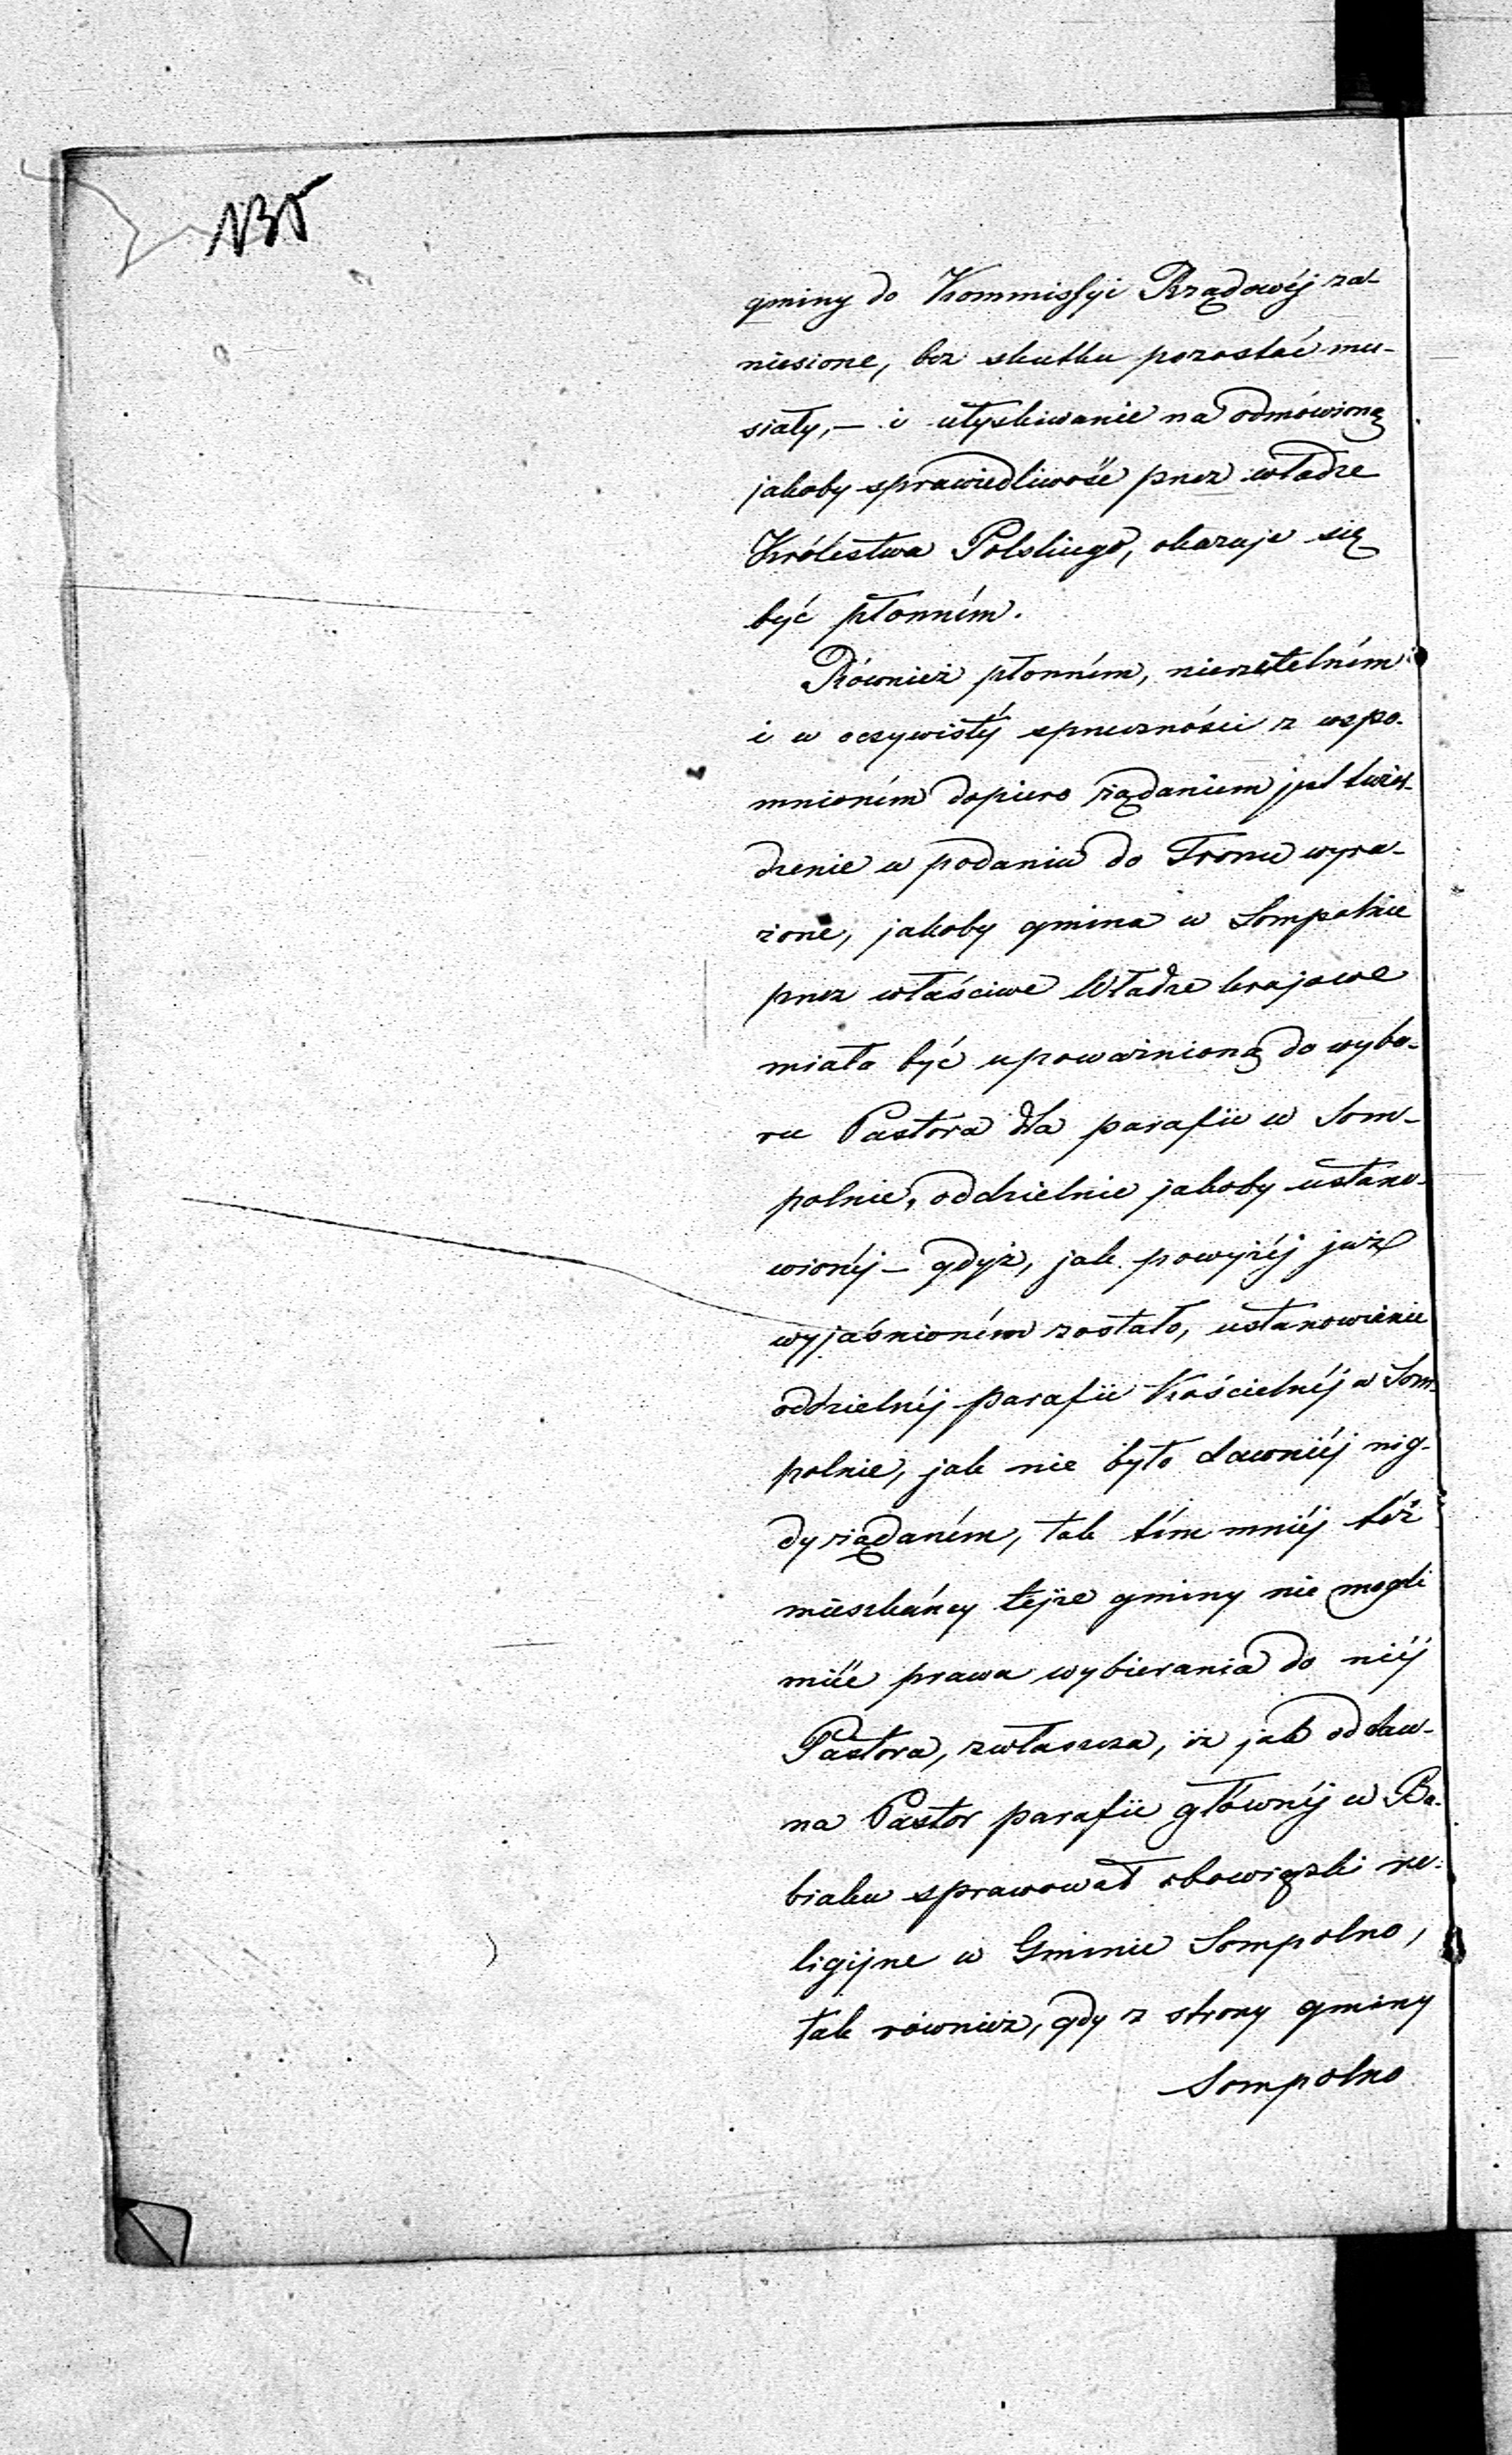 135
gminy do Kommissyi Rządowéj za-
niesione, bez skutku pozostać mu-
siały, – i utyskiwanie na odmówioną
jakoby sprawiedliwość przez władze
Królestwa Polskiego, okazuje się
być płonném.
Również płonném, nierzetelném
i w oczywistéj sprzeczności z wspo-
mnioném dopiero żądaniem jest twier-
dzenie w podaniu do Tronu wyra-
żone, jakoby gmina w Sompolnie
przez właściwe Władze krajowe
miała być upoważnioną do wybo-
ru Pastora dla parafii w Som-
polnie, oddzielnie jakoby ustano-
wionéj – gdyż, jak powyżéj już
wyjaśnioném zostało, ustanowienie
oddzielnéj parafii Kościelnéj w Som-
polnie, jak nie było dawniéj nig-
dy żądaném, tak tém mniéj téż
mieszkańcy tejże gminy nie mogli
miéć prawa wybierania do niéj
Pastora, zwłaszcza, iż jak oddaw-
na Pastor parafii głównéj w Ba-
biaku sprawował obowiązki re-
ligijne w Gminie Sompolno,
tak również, gdy z strony gminy
Sompolno